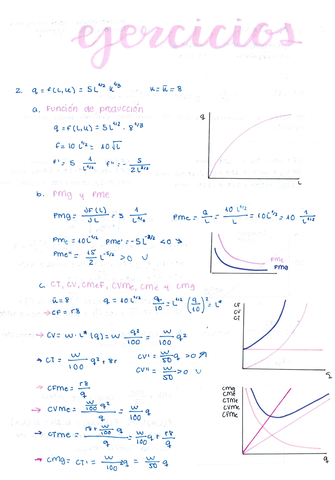 ejercicios
2. q = f(L,K) = 5L^{1/2} K^{1/3} K = K̄ = 8
a. Función de producción
q = f(L,K) = 5L^{1/2} · 8^{1/3}
f = 10 L^{1/2} = 10√L
f' = 5 1/L^{1/2} f'' = - 5/2L^{3/2}
q
L
b. Pmg y Pme
Pmg = ∂F(L)/∂L = 5 1/L^{1/2} Pme = Q/L = 10L^{1/2}/L = 10L^{-1/2} = 10 1/L^{1/2}
Pme = 10L^{-1/2} Pme' = -5L^{-3/2} < 0 ↘
Pme'' = 15/2 L^{-5/2} > 0 ∪
Pme
Pmg
c. CT, CV, CMeF, CVMe, CMe y CMg
K̄ = 8 q = 10L^{1/2} q/10 = L^{1/2} (q/10)² = L*
→ CF = r8
→ CV = w · L*(q) = w q²/100 = w/100 q²
→ CT = w/100 q² + 8r CV' = w/50 q > 0 ↗
CV'' = w/50 > 0 ∪
→ CFMe = r8/q
→ CVMe = w/100 q²/q = w/100 q
→ CTMe = r8 + w/100 q²/q = w/100 q + r8/q
→ CMg = CT' = w/100 2q = w/50 q
CF
CV
CT
q
CMg
CMe
CTMe
CVMe
CFMe
q